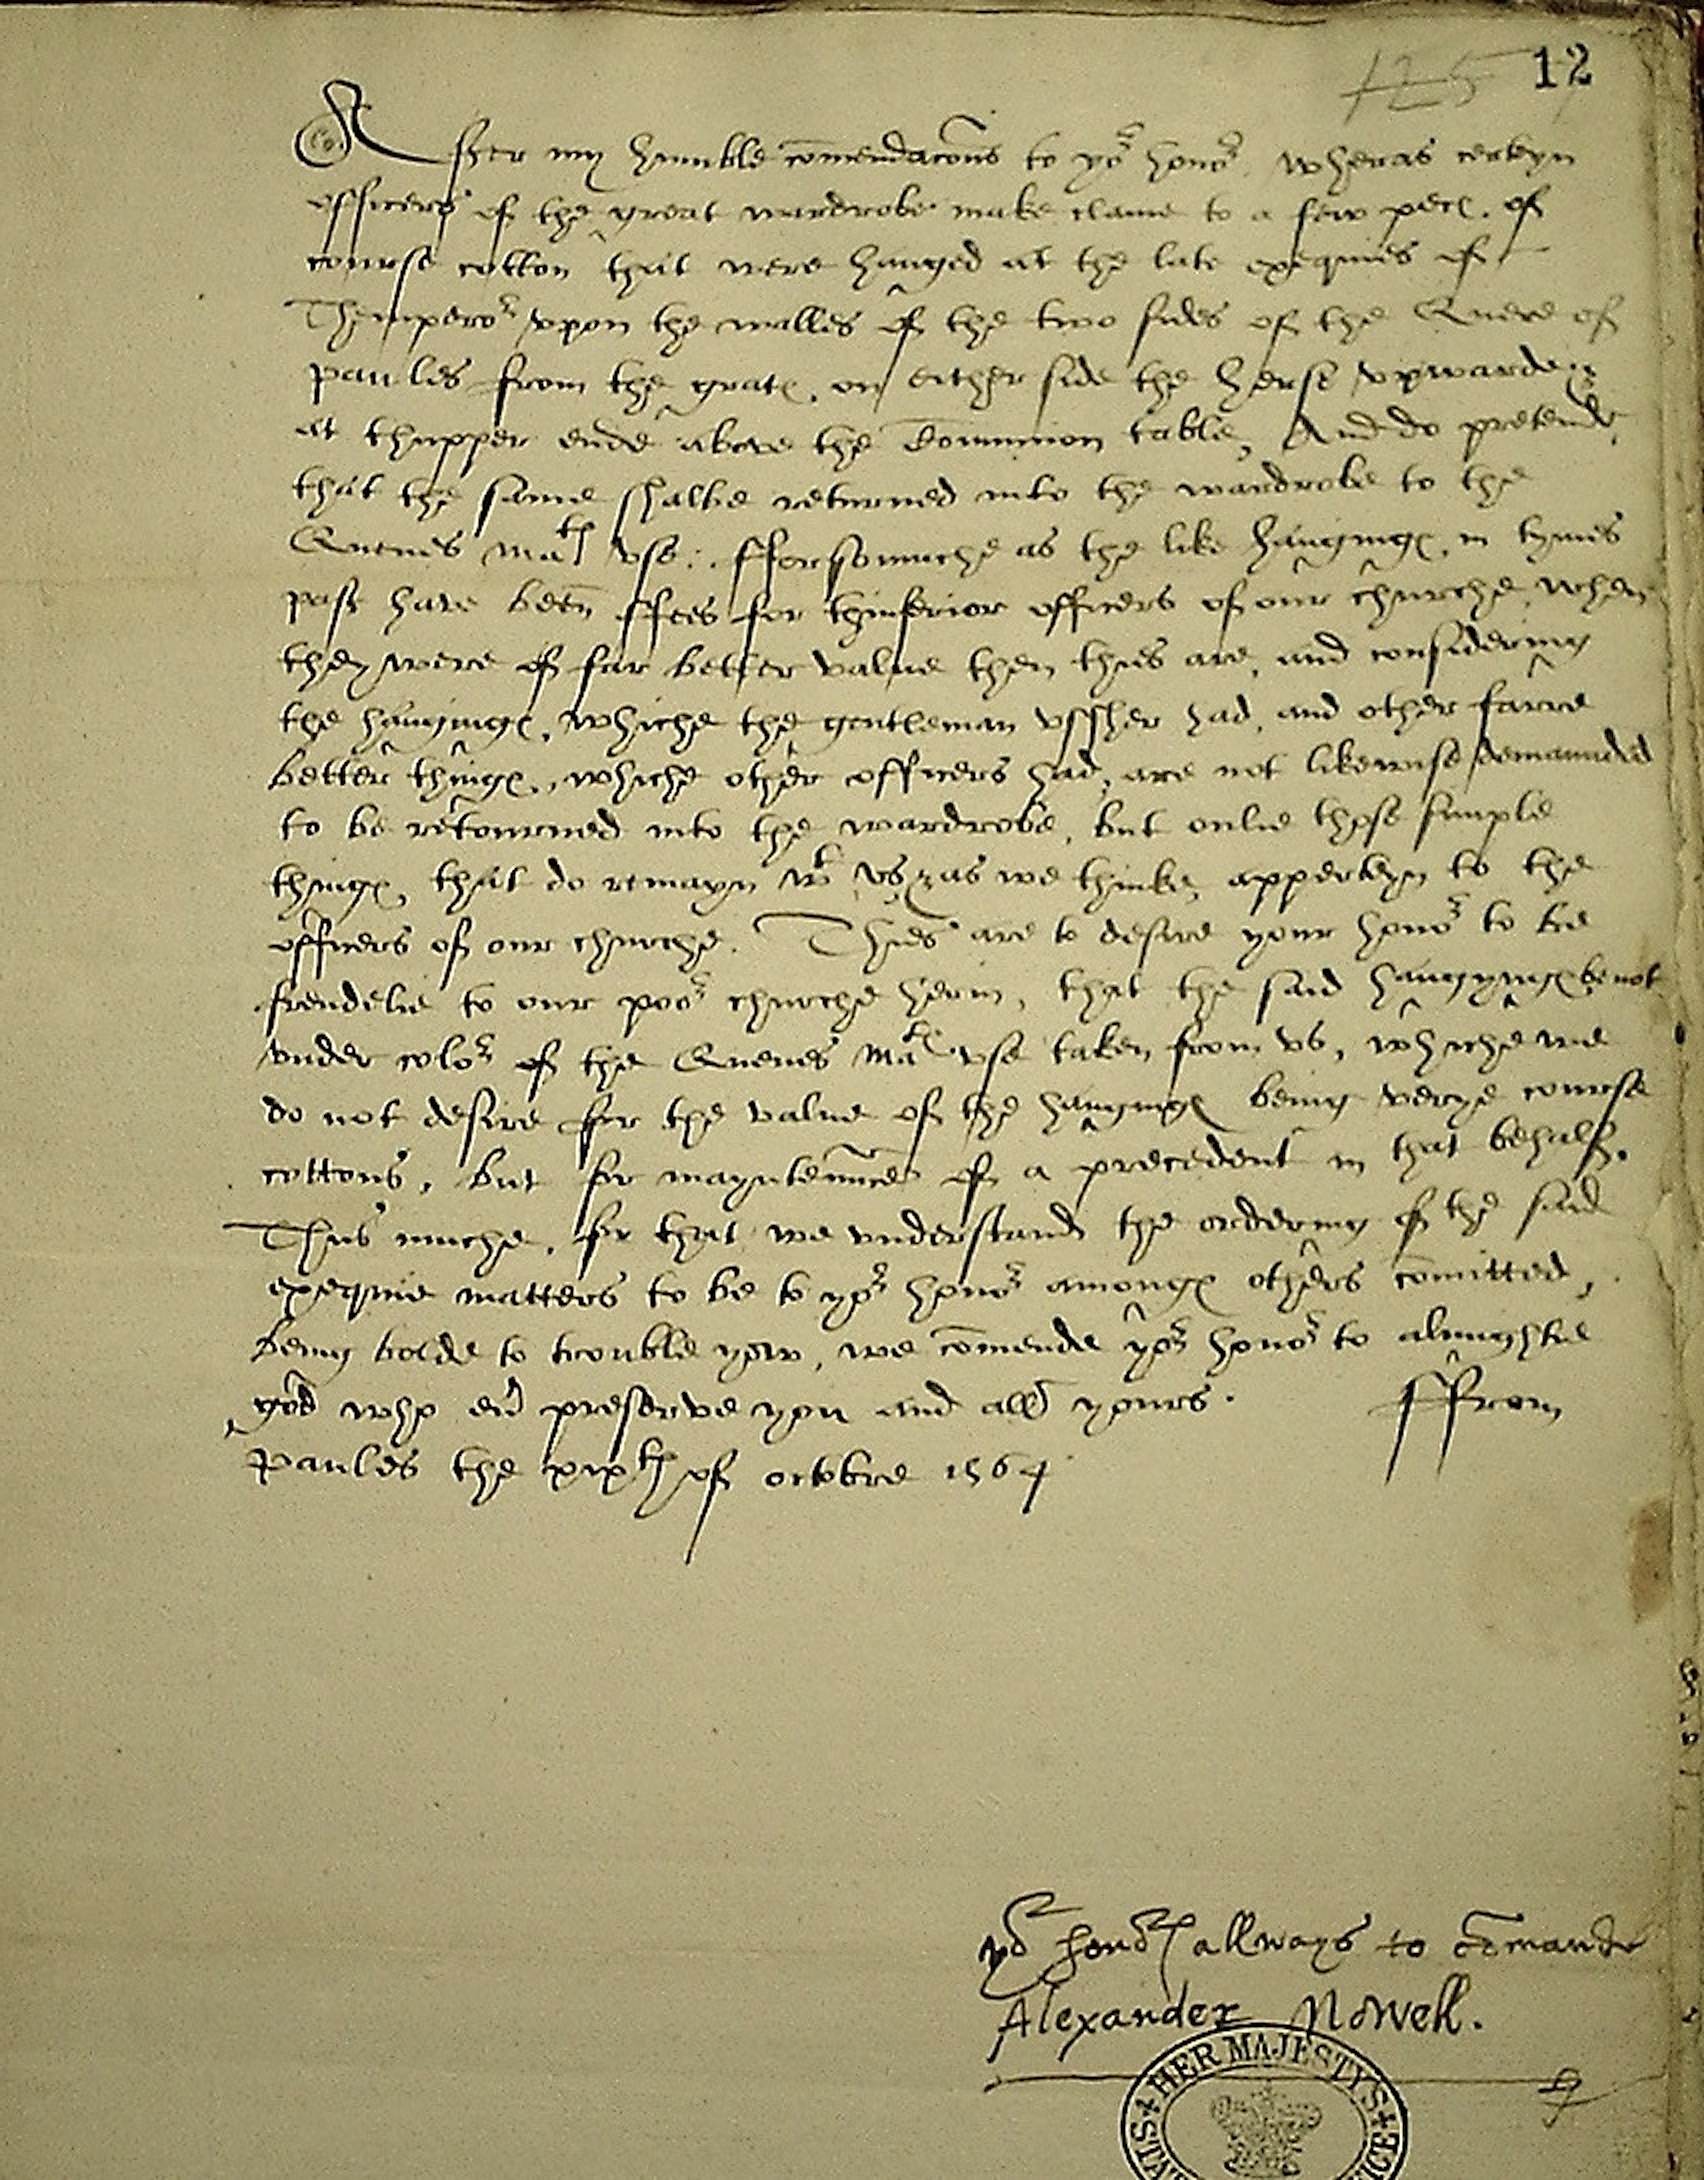 125 12
After my humble comendacons to yor honor. Wheras certeyn
officers of the great wardrobe make clame to a few peces. of
course cotton that were hanged at the late exequies of
Themperor vpon the walles of the two sides of the Quere of
paules from the grates. on either side the herse vpwarde
at thupper ende above the Comunion table, And do pretende,
that the same shalbe returned into the wardrobe to the
Quenes Matis vse: fforsomuche as the like hangings, in tymes
past have been ffees for thinferior officers of our churche, when
they were of far better value then thies are, and considering
the hangings, whiche the gentleman vssher had, and other farre
better things., whiche other officers had, are not likewise demaunded
to be retourned into the wardrobe, but onlie those simple
things, that do remayn wt vs & as we thinke, apperteyn to the
officers of our churche. Thies are to desire your honor to be
frendelie to our poor churche herin, that the said hangyngs be not
vnder color of the Quenes Matis vse taken from vs, whiche we
do not desire for the value of the hangings being verye course
cottons, but for mayntennce of a precedent in that behalf.
Thus muche, for that we vnderstand the ordering of the said
exequie matters to be to yor honor amongs others comitted,
being bolde to trouble yow, we comende yor honor to almightie
god who eu preserve you and all yours. ffrom
Paules the xixth of octobre 1564
yor honors allways to comande
Alexander Nowell.
HER MAJESTY'S